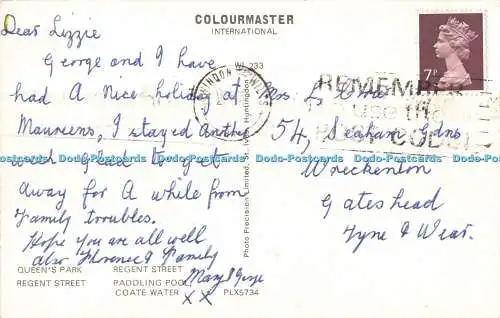 COLOURMASTER
INTERNATIONAL
WI.233
Dear Lizzie
George and I have
had A nice holiday at
Maureens, I stayed Another
week Glad to get
away for A while from
Family troubles.
Hope you are all well
also Florence & Family
Mary & George
X X
Mrs L
54, Seaham Gdns
Wreckenton
Gateshead
Tyne & Wear.
7P
REMEMBER
USE THE
POST CODE
Photo Precision Limited, St. Ives, Huntingdon
Dodo-Postcards Dodo-Postcards Dodo-Postcards Dodo-Postcards Dodo-Postcards Dodo-Postcards
QUEEN'S PARK REGENT STREET
REGENT STREET PADDLING POOL,
COATE WATER PLX5734